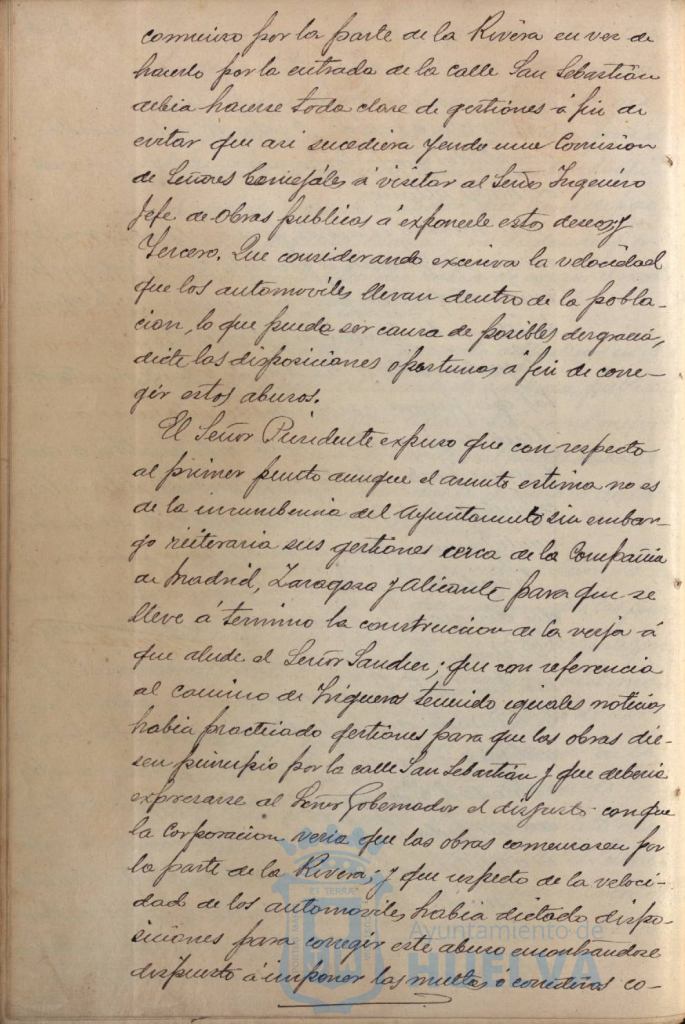 comienzo por la parte de la Rivera en vez de
hacerlo por la entrada de la calle San Sebastián
debia hacerse toda clase de gestiones á fin de
evitar que asi sucediera yendo una Comision
de Señores Concejáles á visitar al Señor Ingeniero
Jefe de Obras públicas á exponerle esto deseo; y
Tercero. Que considerando excesiva la velocidad
que los automoviles llevan dentro de la pobla-
cion, lo que pueda ser causa de posibles desgracias,
dicte las disposiciones oportunas á fin de corre-
gir estos abusos.
El Señor Presidente expuso que con respecto
al primer punto aunque el asunto estima no es
de la incumbencia del Ayuntamiento sin embar-
go reiteraria sus gestiones cerca de la Compañia
de Madrid, Zaragoza y Alicante para que se
lleve á termino la construccion de la verja á
que alude el Señor Sanchez; que con referencia
al camino de Trigueros teniendo iguales noticias
habia practicado gestiones para que las obras die-
sen principio por la calle San Sebastián y que deberia
expresarse al Señor Gobernador el disgusto con que
la Corporacion veria que las obras comenzasen por
la parte de la Rivera; y que respecto de la veloci-
dad de los automoviles habia dictado dispo-
siciones para corregir este abuso encontrandose
dispuesto á imponer las multas ó correctivos co-
Ayuntamiento de
HUELVA